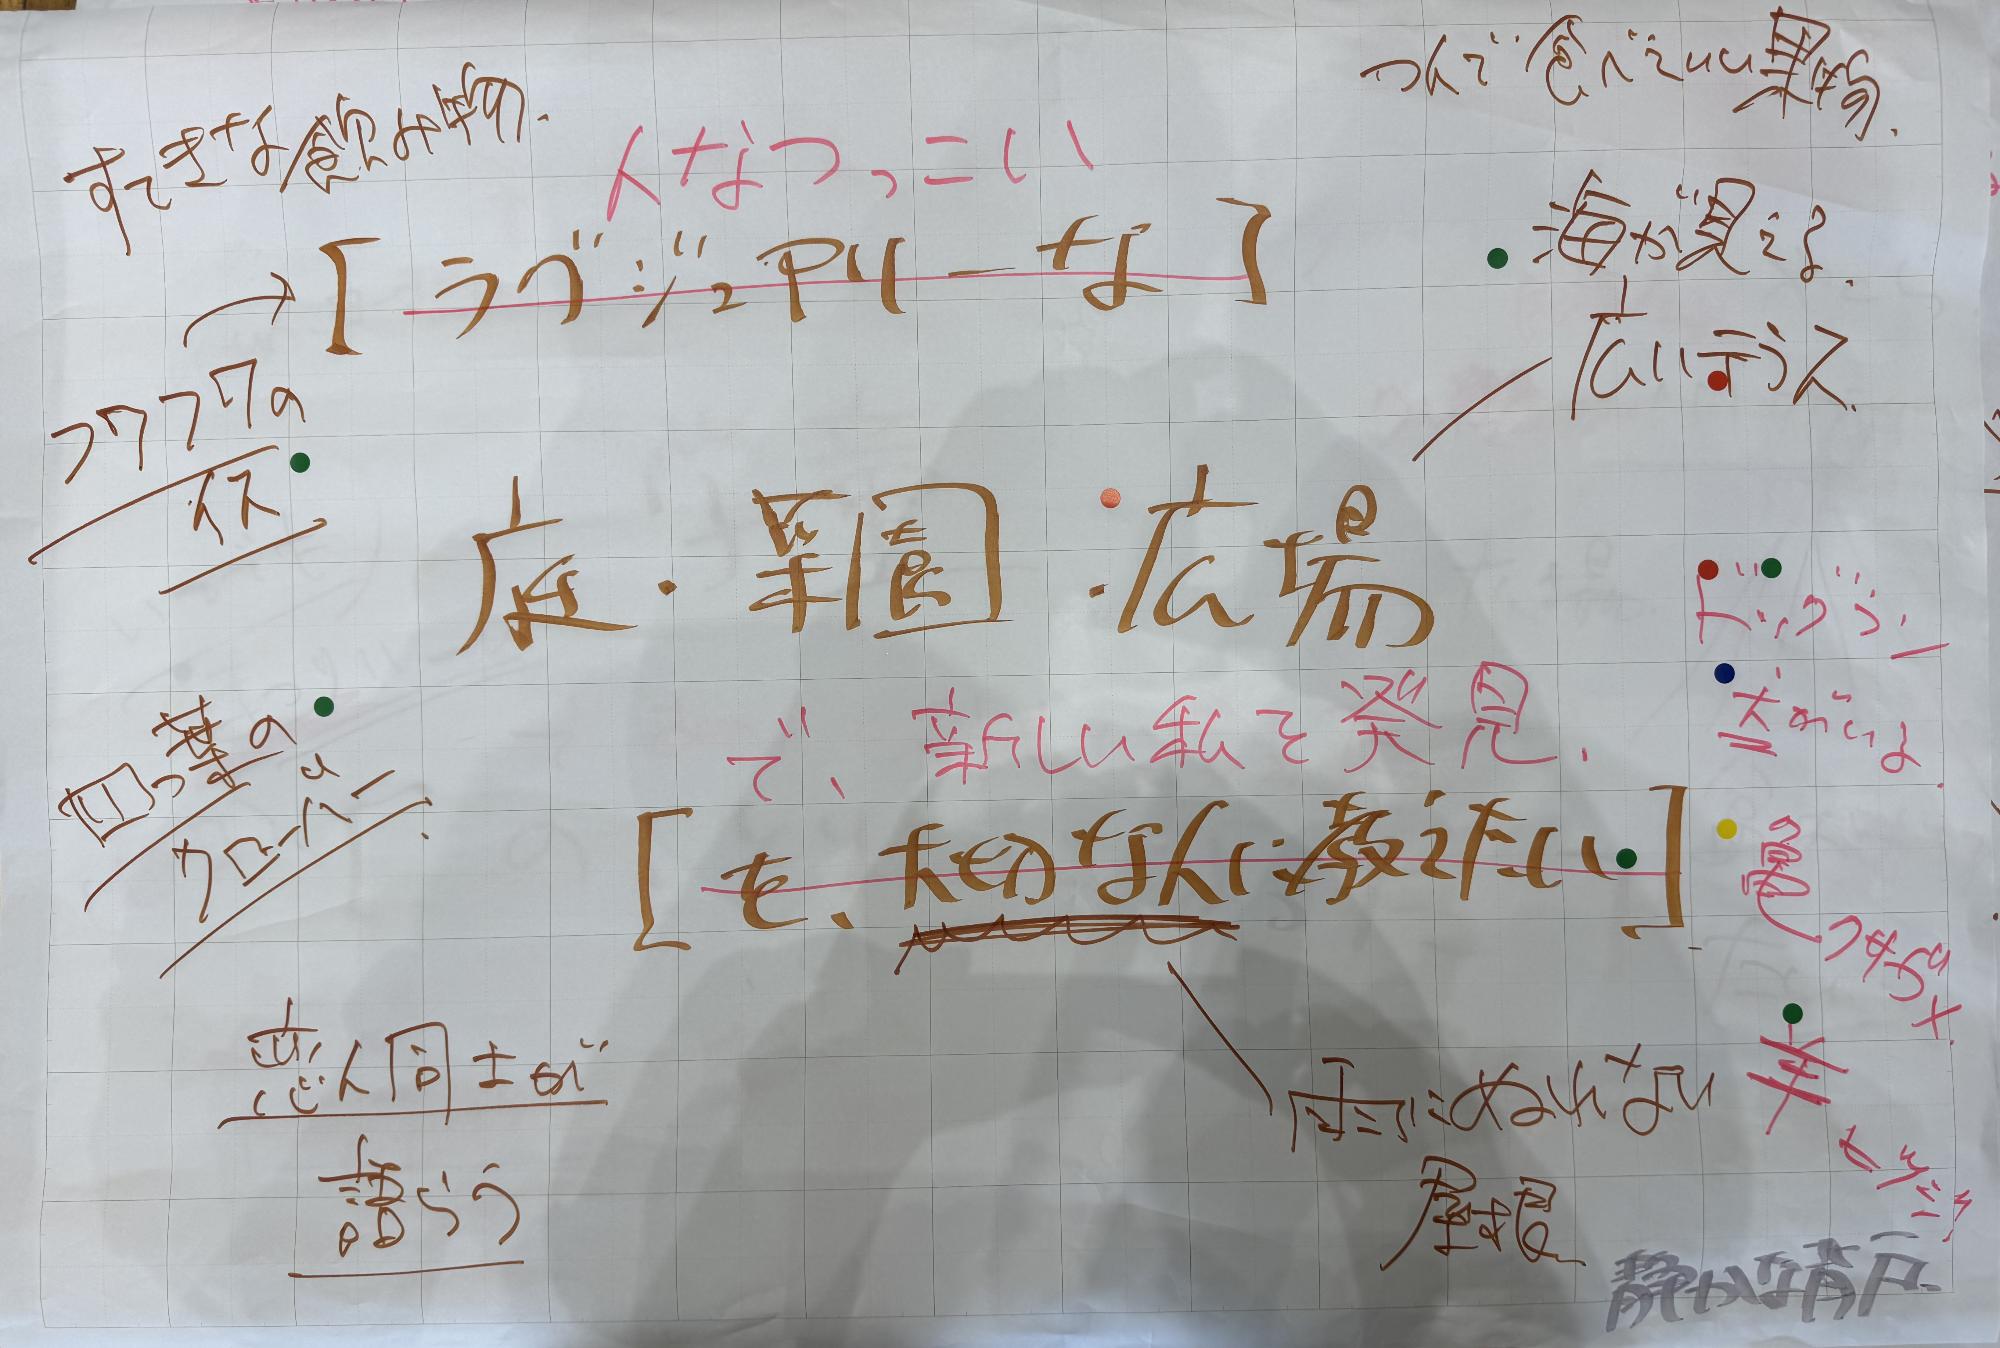 すてきな飲み物.
つんで食べていい果物.
人なつっこい
[ラグジュアリーな]
海が見える.
広いテラス.
フワフワの
イス
庭・菜園・広場
ドッグラン
犬がいる
で、新しい私を発見.
四つ葉の
クローバー
[を、大切な人に教えたい]
亀
羊
恋人同士が
語らう
雨にぬれない
屋根
静かな